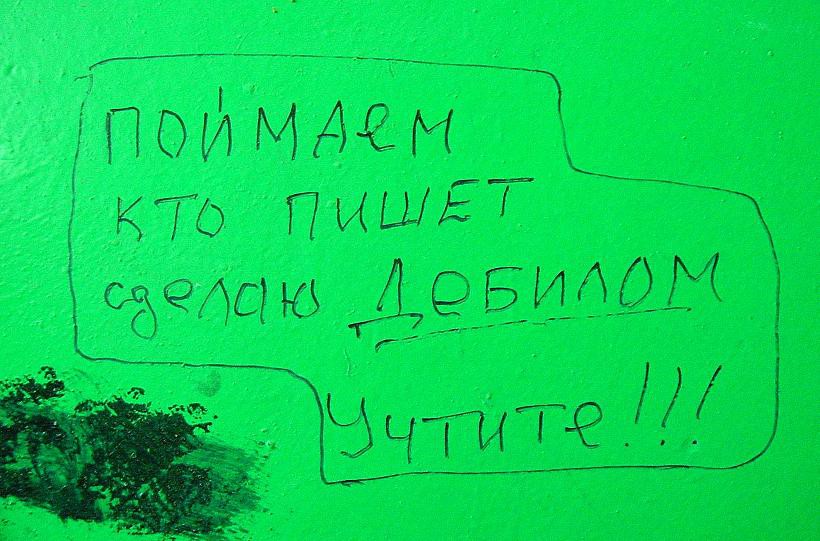 ПОЙМАеМ
КТО ПИШЕТ
сделаю ДеБИЛОМ
Учтите!!!